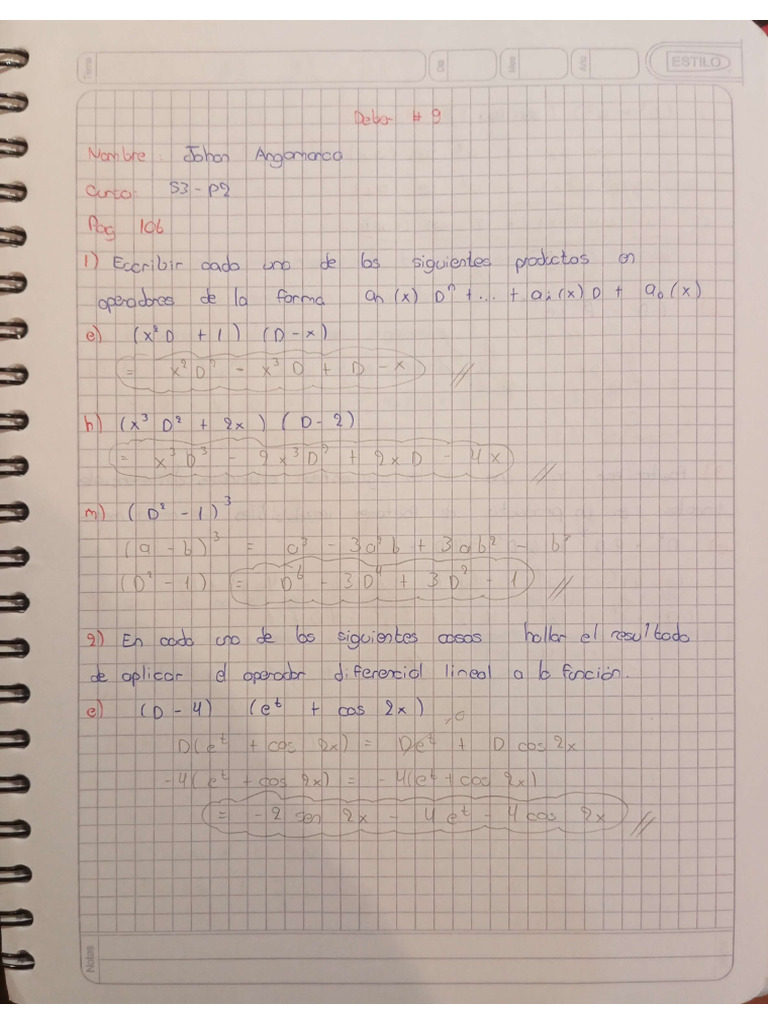 Tema
Día
Mes
Año
ESTILO
Deber # 9
Nombre: Johan Angamarca
Curso: S3-P2
Pag 106
1) Escribir cada uno de los siguientes productos en
operadores de la forma an (x) Dⁿ + ... + a₁(x) D + a₀ (x)
e) (x²D + 1) (D-x)
= x²D² - x³D + D - x //
h) (x³ D² + 2x) (D-2)
= x³D³ - 2x³D² + 2xD - 4x //
m) (D² - 1)³
(a - b)³ = a³ - 3a²b + 3ab² - b³
(D² - 1) = D⁶ - 3D⁴ + 3D² - 1 //
2) En cada uno de los siguientes casos hallar el resultado
de aplicar el operador diferencial lineal a la función.
e) (D - 4) (eᵗ + cos 2x)
0
D(eᵗ + cos 2x) = Deᵗ + D cos 2x
-4(eᵗ + cos 2x) = -4(eᵗ + cos 2x)
= -2 sen 2x - 4eᵗ - 4 cos 2x //
Notas